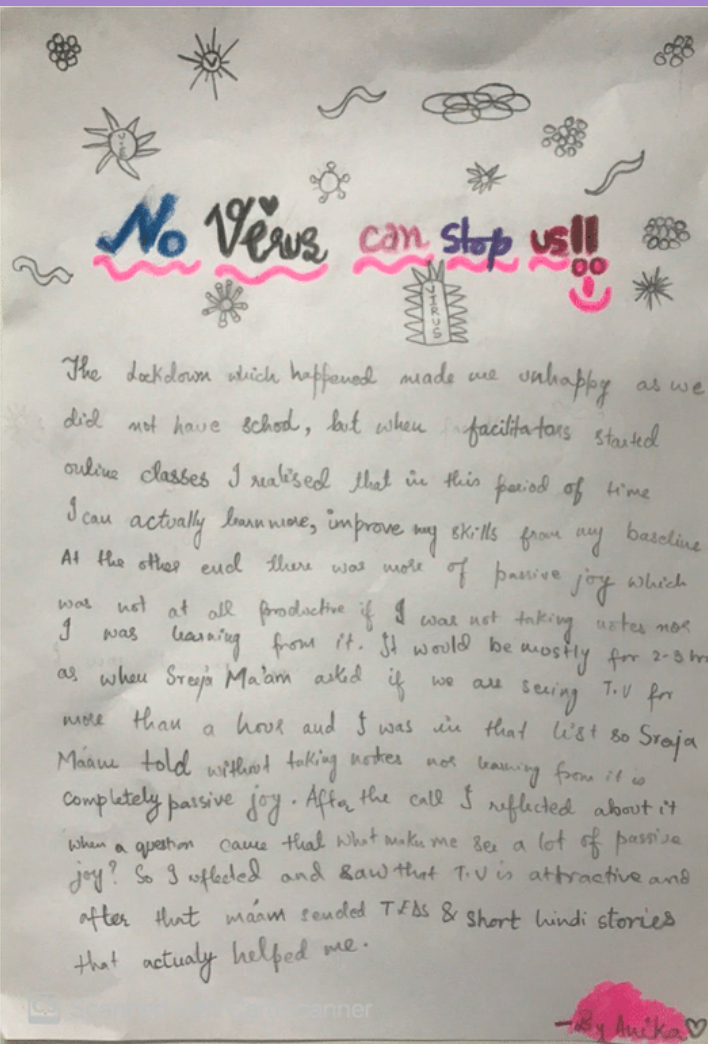 V
VIRUS
No Verus can stop us!!
VIRUS
The lockdown which happened made me unhappy as we
did not have school, but when facilitators started
online classes I realised that in this period of time
I can actually learn more, improve my skills from my baseline
At the other end there was more of passive joy which
was not at all productive if I was not taking notes nor
I was learning from it. It would be mostly for 2-3 hr
as when Sreeja Ma'am asked if we are seeing T.V for
more than a hour and I was in that list so Sreeja
Ma'am told without taking notes nor learning from it is
completely passive joy. After the call I reflected about it
when a question came that what makes me see a lot of passive
joy? So I reflected and saw that T.V is attractive and
after that ma'am sended TEDs & short hindi stories
that actualy helped me.
CS Scanned with CamScanner
- By Anika